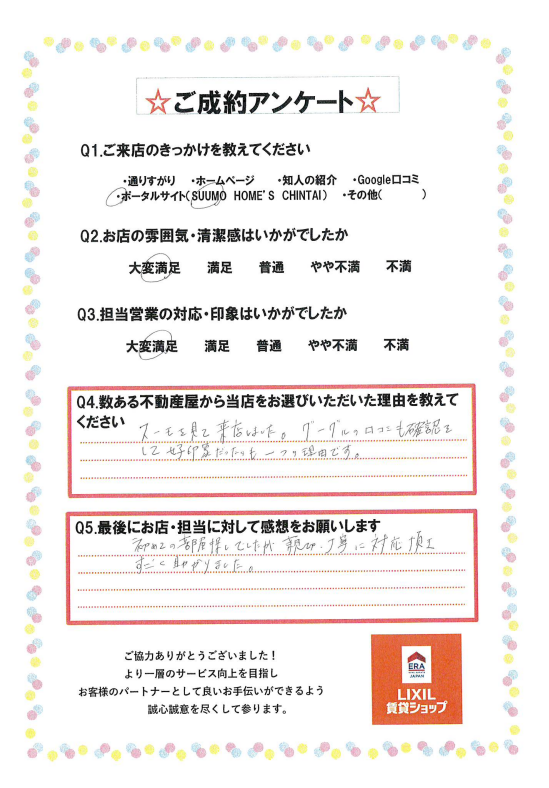 ☆ご成約アンケート☆
Q1.ご来店のきっかけを教えてください
・通りすがり ・ホームページ ・知人の紹介 ・Google口コミ
・ポータルサイト(SUUMO HOME'S CHINTAI) ・その他( )
Q2.お店の雰囲気・清潔感はいかがでしたか
大変満足 満足 普通 やや不満 不満
Q3.担当営業の対応・印象はいかがでしたか
大変満足 満足 普通 やや不満 不満
Q4.数ある不動産屋から当店をお選びいただいた理由を教えて
ください
スーモを見て来店しました。グーグルの口コミも確認を
して好印象だったのも一つの理由です。
Q5.最後にお店・担当に対して感想をお願いします
初めての部屋探しでしたが親切・丁寧に対応頂き
すごく助かりました。
ご協力ありがとうございました！
より一層のサービス向上を目指し
お客様のパートナーとして良いお手伝いができるよう
誠心誠意を尽くして参ります。
ERA
JAPAN
LIXIL
賃貸ショップ